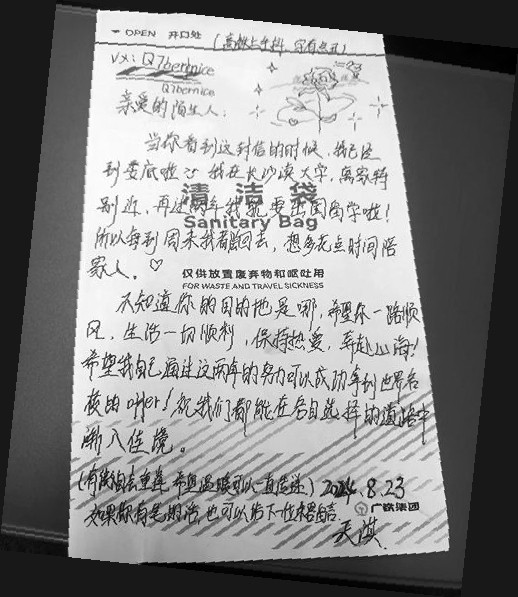 OPEN 开口处 (高铁上手抖，字有点丑)
VX: Q7bernice
Q7bernice
亲爱的陌生人：
当你看到这封信的时候，我已经
到娄底啦 我在长沙读大学，离家特
别近，再过两年我就要出国留学啦！
清洁袋
Sanitary Bag
所以每到周末我都跑回去，想多花点时间陪
家人。♡
仅供放置废弃物和呕吐用
FOR WASTE AND TRAVEL SICKNESS
不知道你的目的地是哪，希望你一路顺
风，生活一切顺利，保持热爱，奔赴山海！
希望我自己通过这两年的努力可以成功拿到世界名
校的offer！祝我们都能在各自选择的道路中
渐入佳境。
(有缘自会重逢 希望温暖可以一直传递) 2024.8.23
如果你有笔的话，也可以给下一位乘客留言
广铁集团
天淇